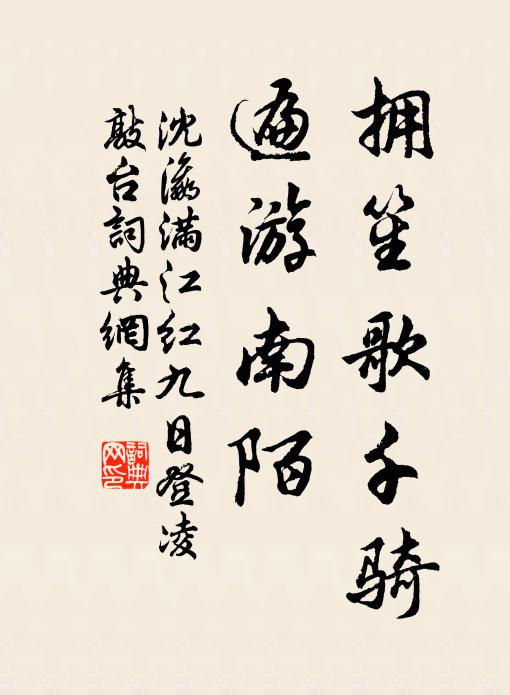 拥笙歌千骑
遍游南陌
沈瀛满江红九日登凌
敲台詞典網集
詞典
网印